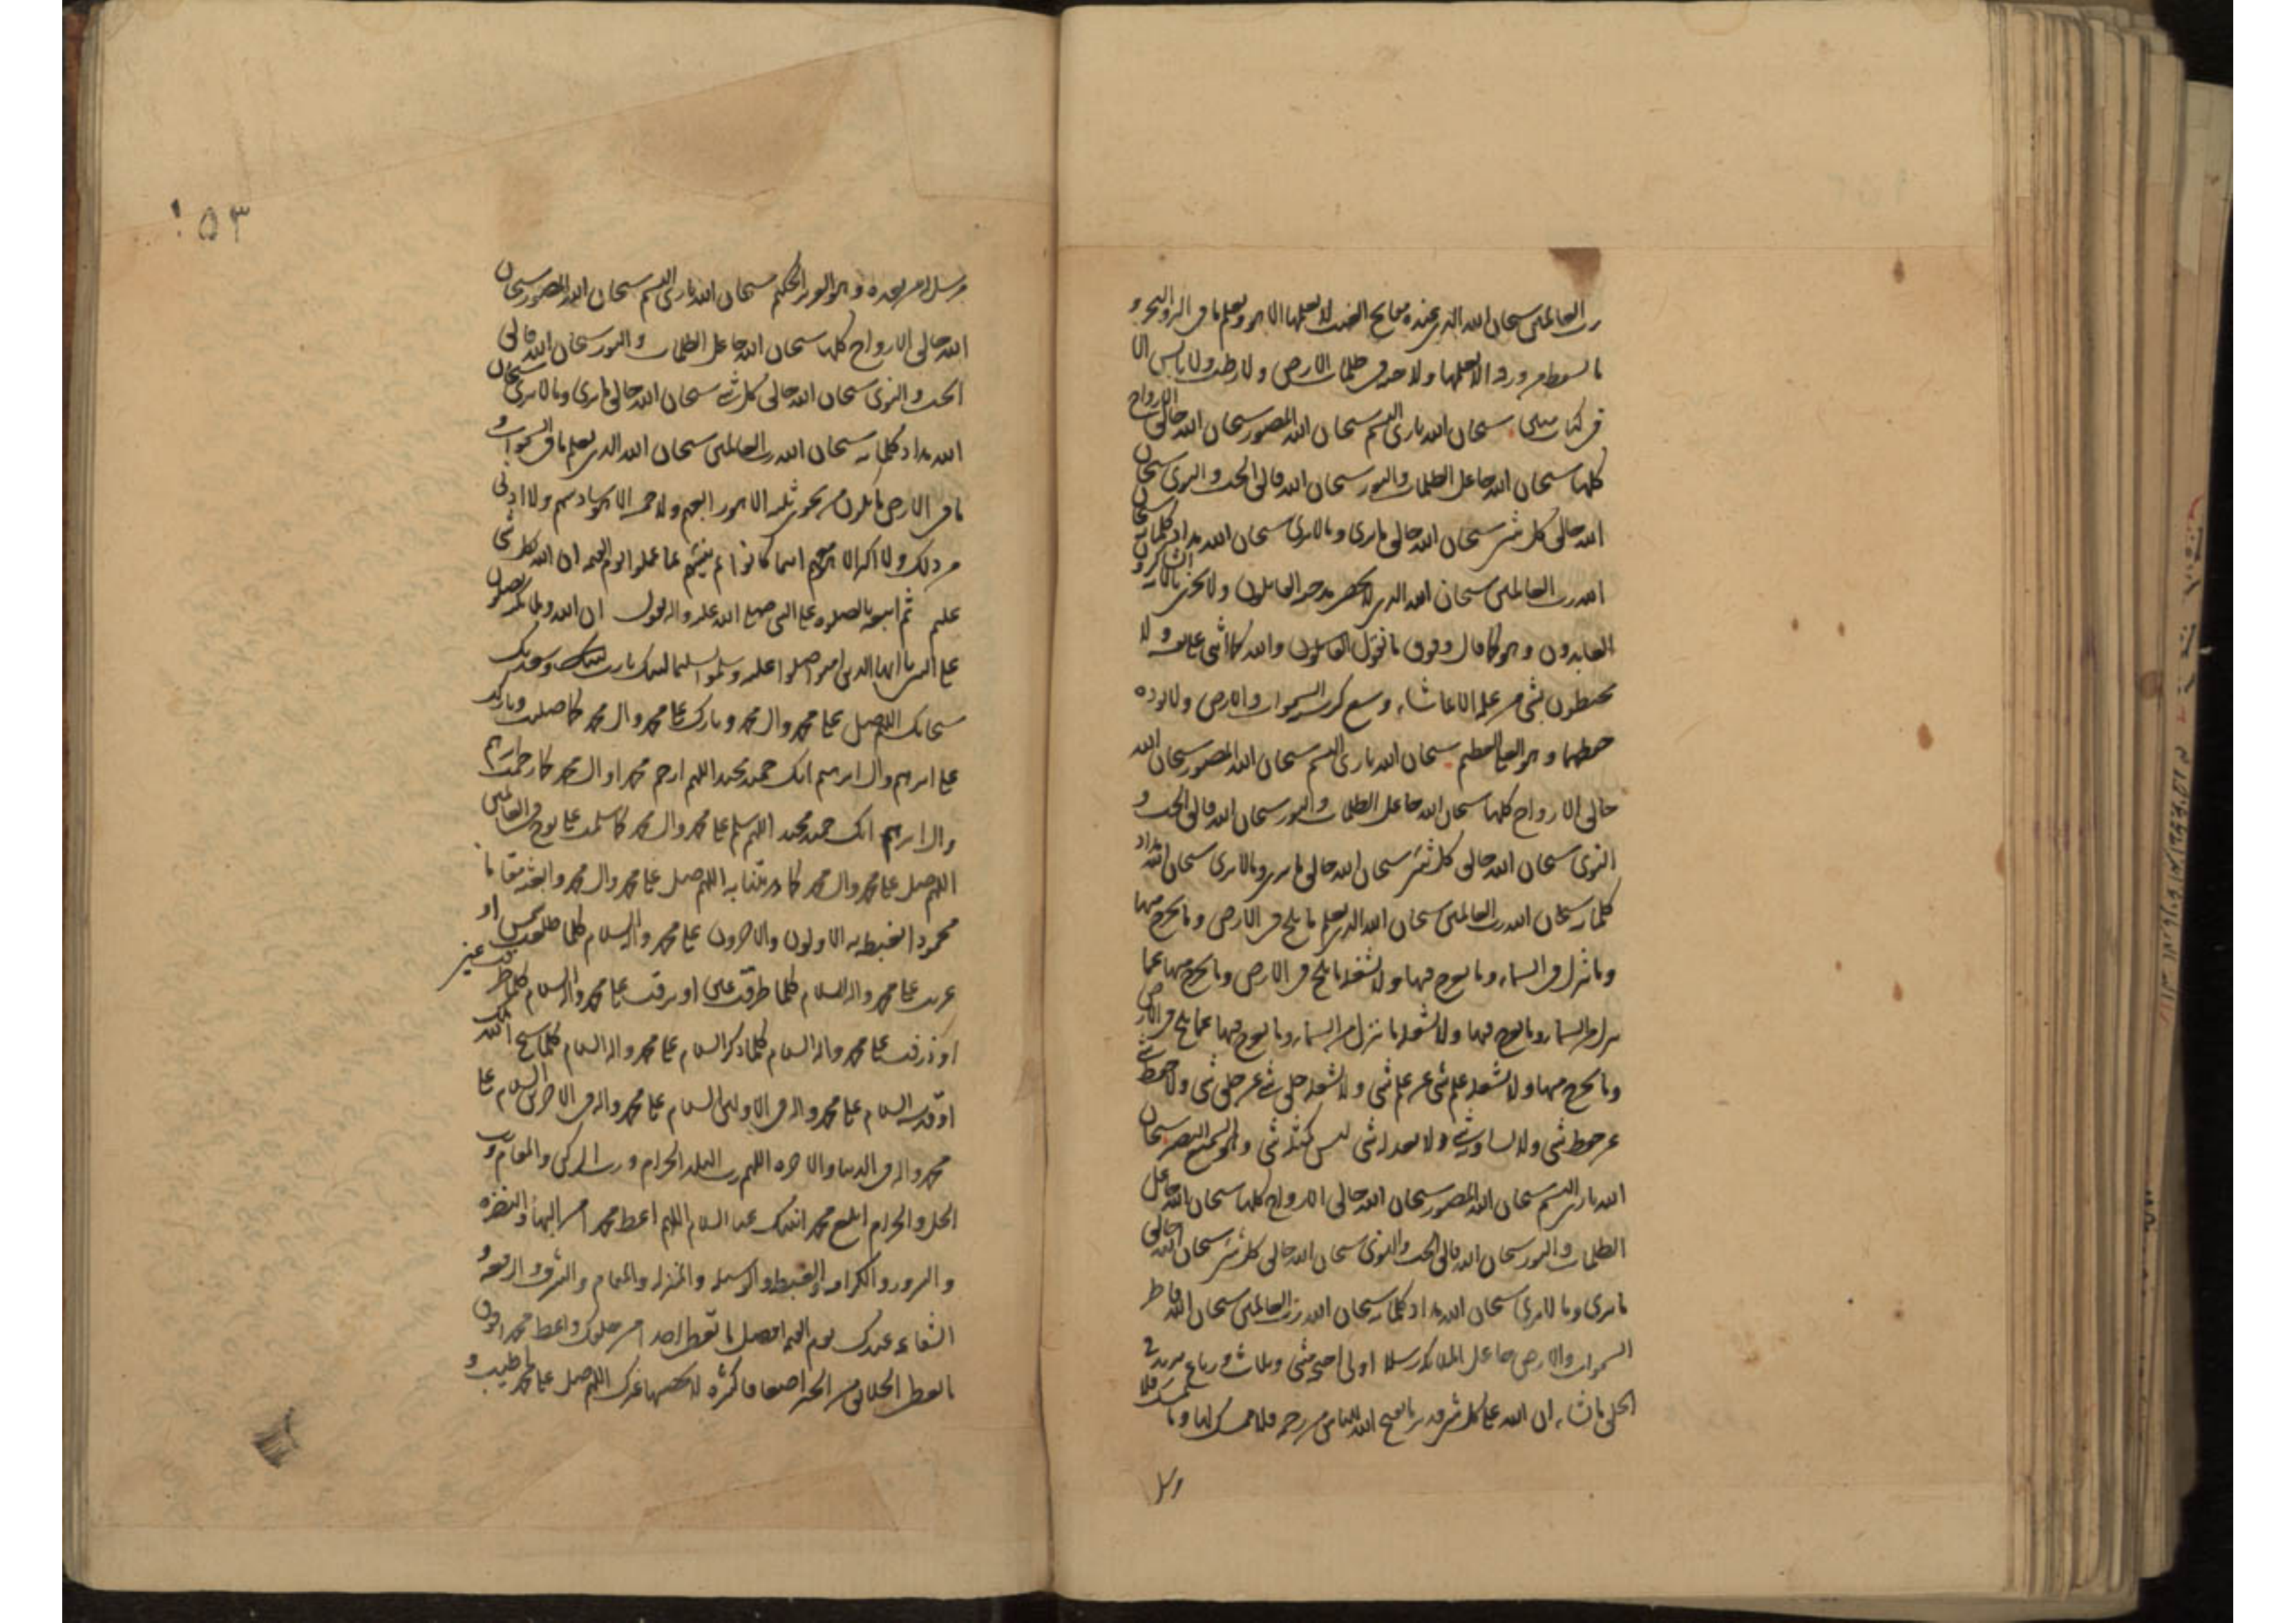 رب العالمین سبحان الله الذی عنده مفاتح الغیب لا یعلمها الا هو و یعلم ما فی البر و البحر و
ما تسقط من ورقة الا یعلمها و لا حبة فی ظلمات الارض و لا رطب و لا یابس الا
فی کتاب مبین سبحان الله باری النسم سبحان الله المصور سبحان الله خالق الازواج
کلها سبحان الله جاعل الظلمات و النور سبحان الله فالق الحب و النوی سبحان
الله خالق کل شیء سبحان الله خالق ما یری و ما لا یری سبحان الله مداد کلماته سبحان
الله رب العالمین سبحان الله الذی لا یحصی مدحته القائلون و لا یجزی بآلائه الشاکرون
العابدون و هو کما قال و فوق ما نقول القائلون و الله کما اثنی علی نفسه و لا
یحیطون بشیء من علمه الا بما شاء وسع کرسیه السموات و الارض و لا یوده
حفظهما و هو العلی العظیم سبحان الله باری النسم سبحان الله المصور سبحان الله
خالق الازواج کلها سبحان الله جاعل الظلمات و النور سبحان الله فالق الحب و
النوی سبحان الله خالق کل شیء سبحان الله خالق ما یری و ما لا یری سبحان الله مداد
کلماته سبحان الله رب العالمین سبحان الله الذی یعلم ما یلج فی الارض و ما یخرج منها
و ما ینزل من السماء و ما یعرج فیها و لا یشغله ما یلج فی الارض و ما یخرج منها عما
ینزل من السماء و ما یعرج فیها و لا یشغله ما ینزل من السماء و ما یعرج فیها عما یلج فی الارض
و ما یخرج منها و لا یشغله علم شیء عن علم شیء و لا یشغله خلق شیء عن خلق شیء و لا حفظ شیء
عن حفظ شیء و لا یساویه شیء و لا یعدله شیء لیس کمثله شیء و هو السمیع البصیر سبحان
الله باری النسم سبحان الله المصور سبحان الله خالق الازواج کلها سبحان الله جاعل
الظلمات و النور سبحان الله فالق الحب و النوی سبحان الله خالق کل شیء سبحان الله خالق
ما یری و ما لا یری سبحان الله مداد کلماته سبحان الله رب العالمین سبحان الله فاطر
السموات و الارض جاعل الملائکة رسلا اولی اجنحة مثنی و ثلاث و رباع یزید فی
الخلق ما یشاء ان الله علی کل شیء قدیر ما یفتح الله للناس من رحمة فلا ممسک لها و ما یمسک فلا
۱۵۳
مرسل له من بعده و هو العزیز الحکیم سبحان الله باری النسم سبحان الله المصور سبحان
الله خالق الازواج کلها سبحان الله جاعل الظلمات و النور سبحان الله فالق
الحب و النوی سبحان الله خالق کل شیء سبحان الله خالق ما یری و ما لا یری سبحان
الله مداد کلماته سبحان الله رب العالمین سبحان الله الذی یعلم ما فی السموات و
ما فی الارض ما یکون من نجوی ثلثة الا هو رابعهم و لا خمسة الا هو سادسهم و لا ادنی
من ذلک و لا اکثر الا هو معهم اینما کانوا ثم ینبئهم بما عملوا یوم القیمة ان الله بکل شیء
علیم ثم اتبعه بالصلوة علی النبی صلی الله علیه و اله فقول ان الله و ملائکته یصلون
علی النبی یا ایها الذین امنوا صلوا علیه و سلموا تسلیما لبیک یا رب لبیک و سعدیک
سبحانک اللهم صل علی محمد و ال محمد و بارک علی محمد و ال محمد کما صلیت و بارکت
علی ابرهیم و ال ابرهیم انک حمید مجید اللهم ارحم محمدا و ال محمد کما رحمت ابرهیم
و ال ابرهیم انک حمید مجید اللهم سلم علی محمد و ال محمد کما سلمت علی نوح فی العالمین
اللهم صل علی محمد و ال محمد کما هدیتنا به اللهم صل علی محمد و ال محمد و ابعثه مقاما
محمودا یغبطه به الاولون و الاخرون علی محمد و اله السلام کلما طلعت شمس او
غربت علی محمد و اله السلام کلما طرفت عین او برقت علی محمد و اله السلام کلما طرفت عین
او ذرفت علی محمد و اله السلام کلما ذکر السلام علی محمد و اله السلام کلما سبح الله ملک
او قدسه السلام علی محمد و اله فی الاولین السلام علی محمد و اله فی الاخرین السلام علی
محمد و اله فی الدنیا و الاخرة اللهم رب البلد الحرام و رب الرکن و المقام و رب
الحل و الحرام ابلغ محمدا نبیک عنا السلام اللهم اعط محمدا من البهاء و النضرة
و السرور و الکرامة و الغبطة و الوسیلة و المنزلة و المقام و الشرف و الرفعة و
الشفاعة عندک یوم القیمة افضل ما تعطی احدا من خلقک و اعط محمدا فوق
ما تعطی الخلائق من الخیر اضعافا کثیرة لا یحصیها غیرک اللهم صل علی محمد اطیب و